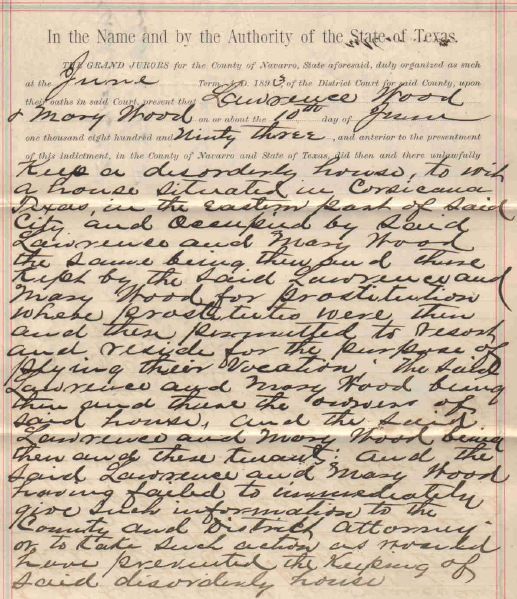 In the Name and by the Authority of the State of Texas.
THE GRAND JURORS for the County of Navarro, State aforesaid, duly organized as such
at the June Term A.D. 1893 of the District Court for said County, upon
their oaths in said Court, present that Lawrence Wood
& Mary Wood on or about the 10th day of June
one thousand eight hundred and Ninty three, and anterior to the presentment
of this indictment, in the County of Navarro and State of Texas, did then and there unlawfully
Keep a disorderly house, to wit
a house situated in Corsicana
Texas, in the Eastern part of said
City and Occupied by said
Lawrence and Mary Wood
the same being then and there
Kept by the said Lawrence and
Mary Wood for prostitution
where prostitutes were then
and then permitted to resort
and reside for the purpose of
plying their vocation. The said
Lawrence and Mary Wood being
then and there the owners of
said house, and the said
Lawrence and Mary Wood being
then and there tenant: and the
said Lawrence and Mary Wood
having failed to immediately
give such information to the
County and District Attorney
or to take such action as would
have prevented the Keeping of
said disorderly house